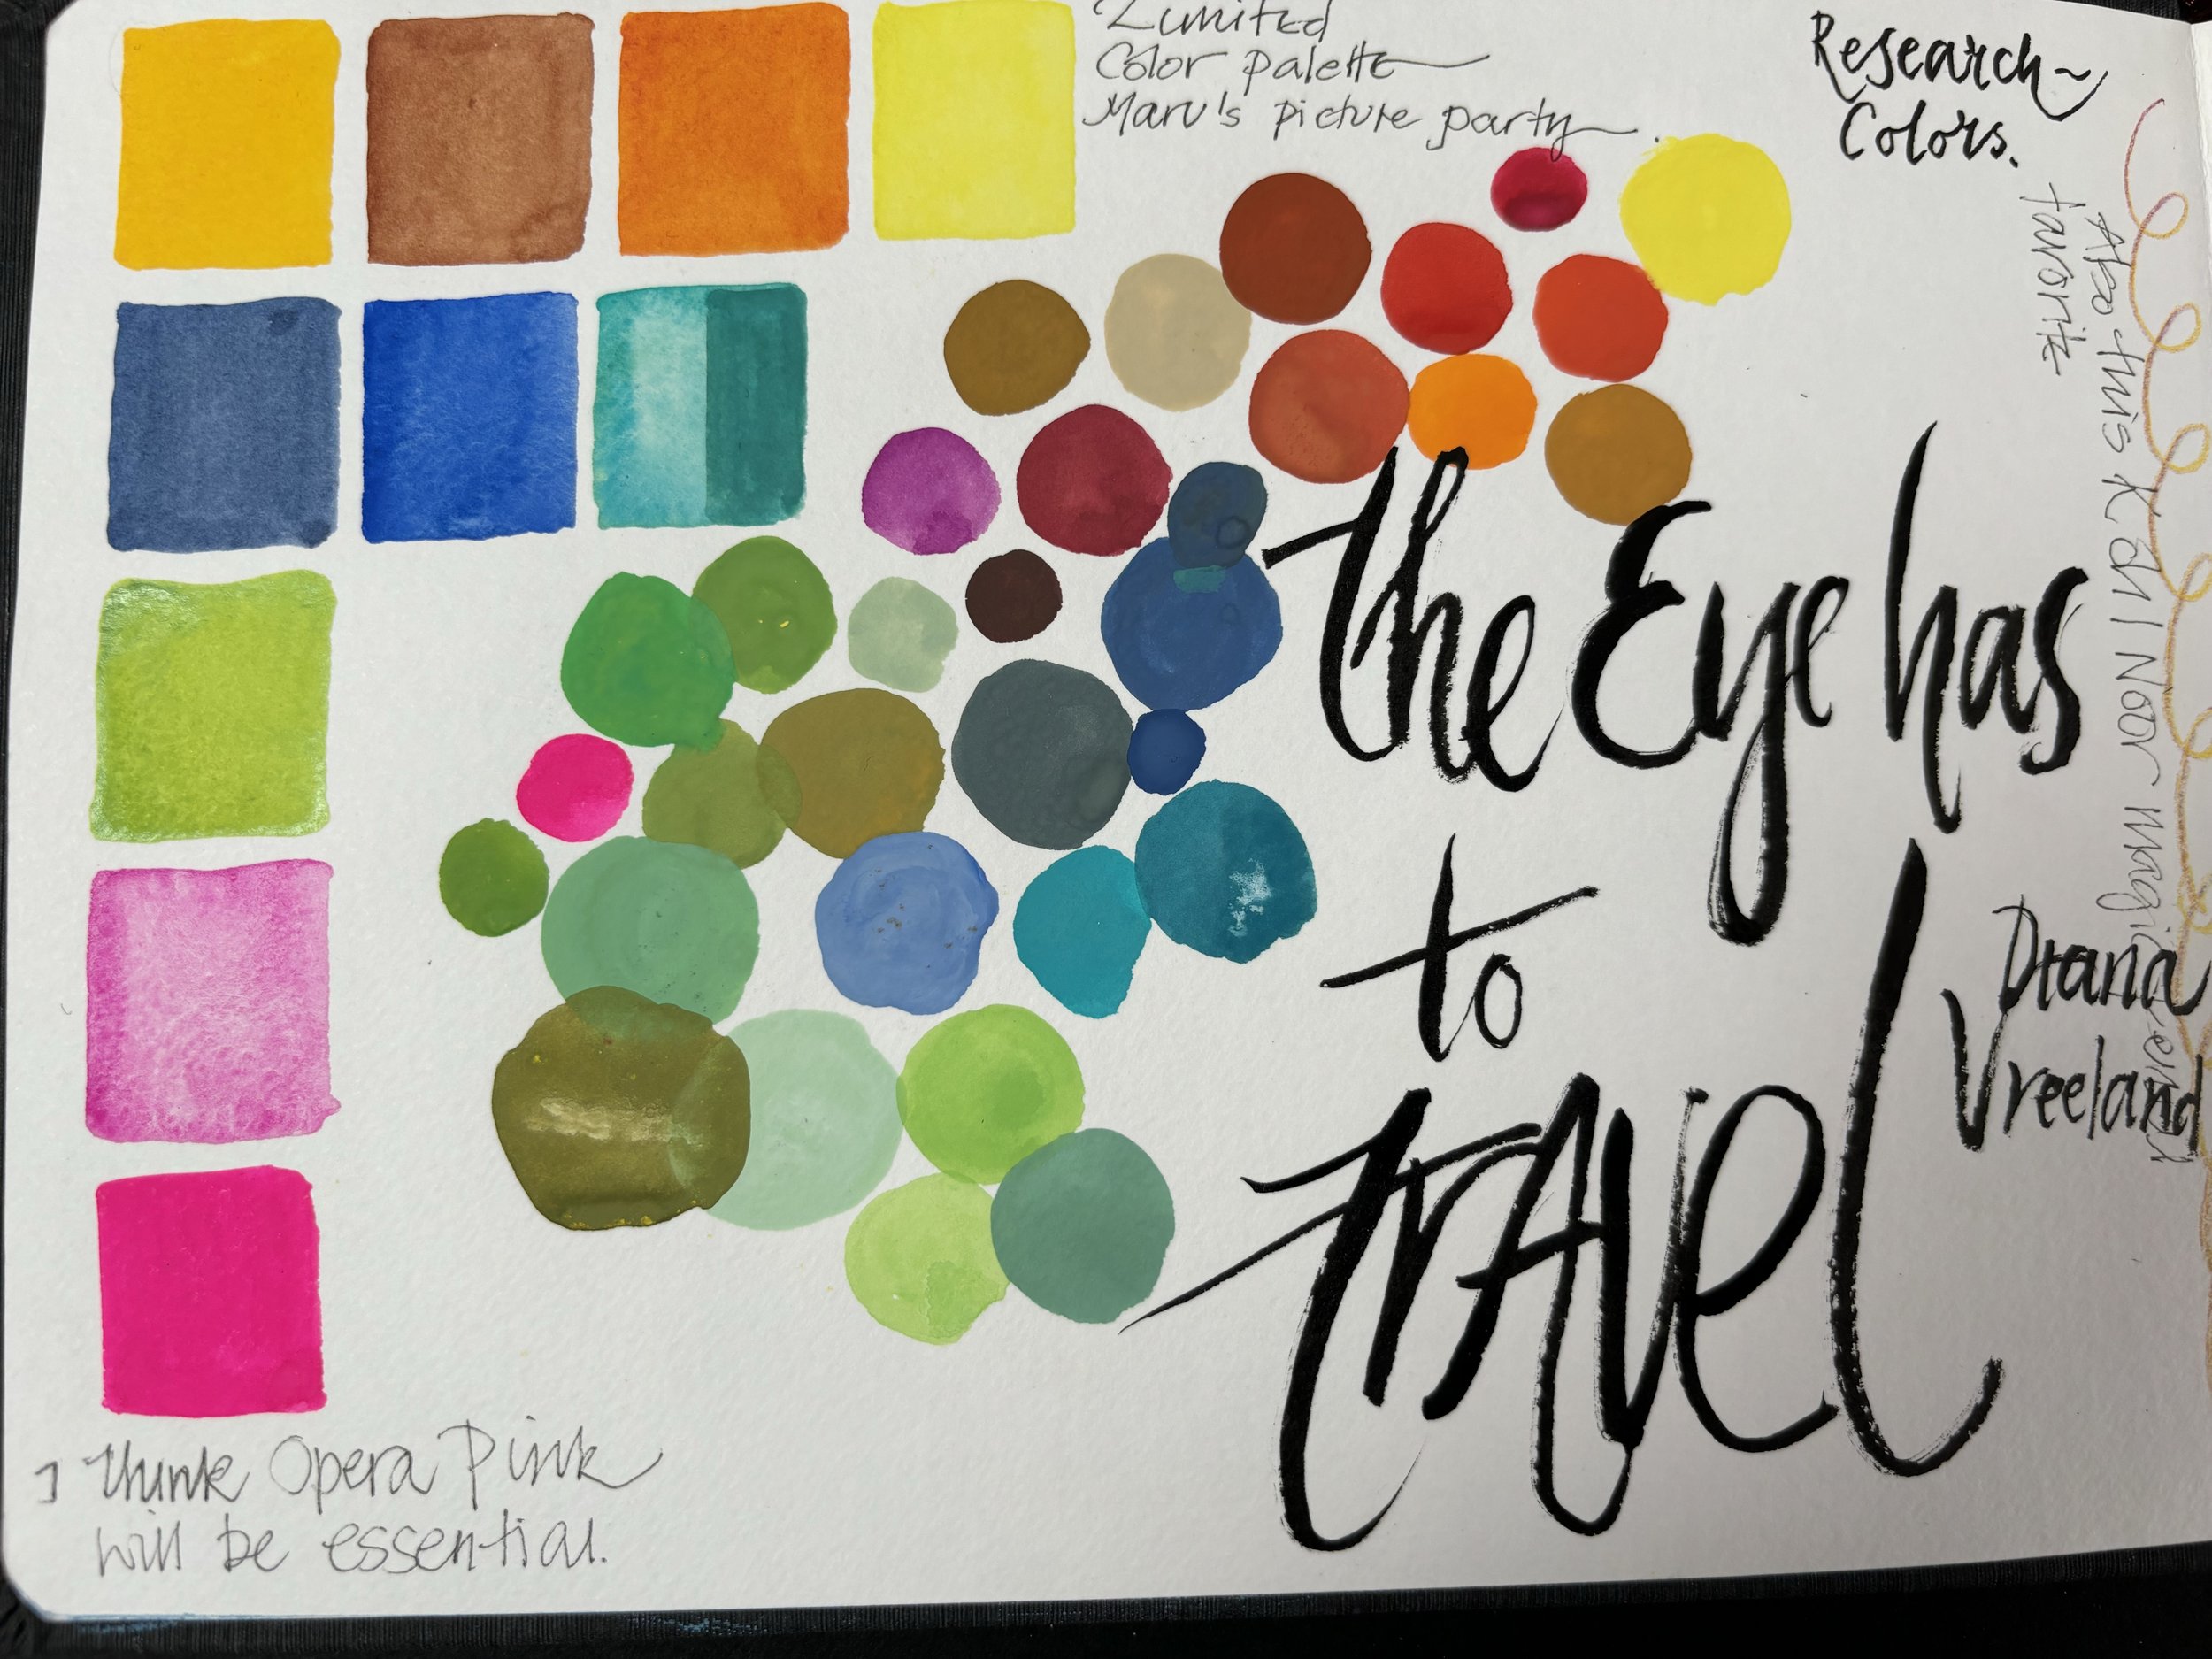 Limited
Color palette
Maru's picture party.
Research
Colors.
Also this
favorite
The Eye has
to
TRAVEL
Diana
Vreeland
I think Opera Pink
will be essential.